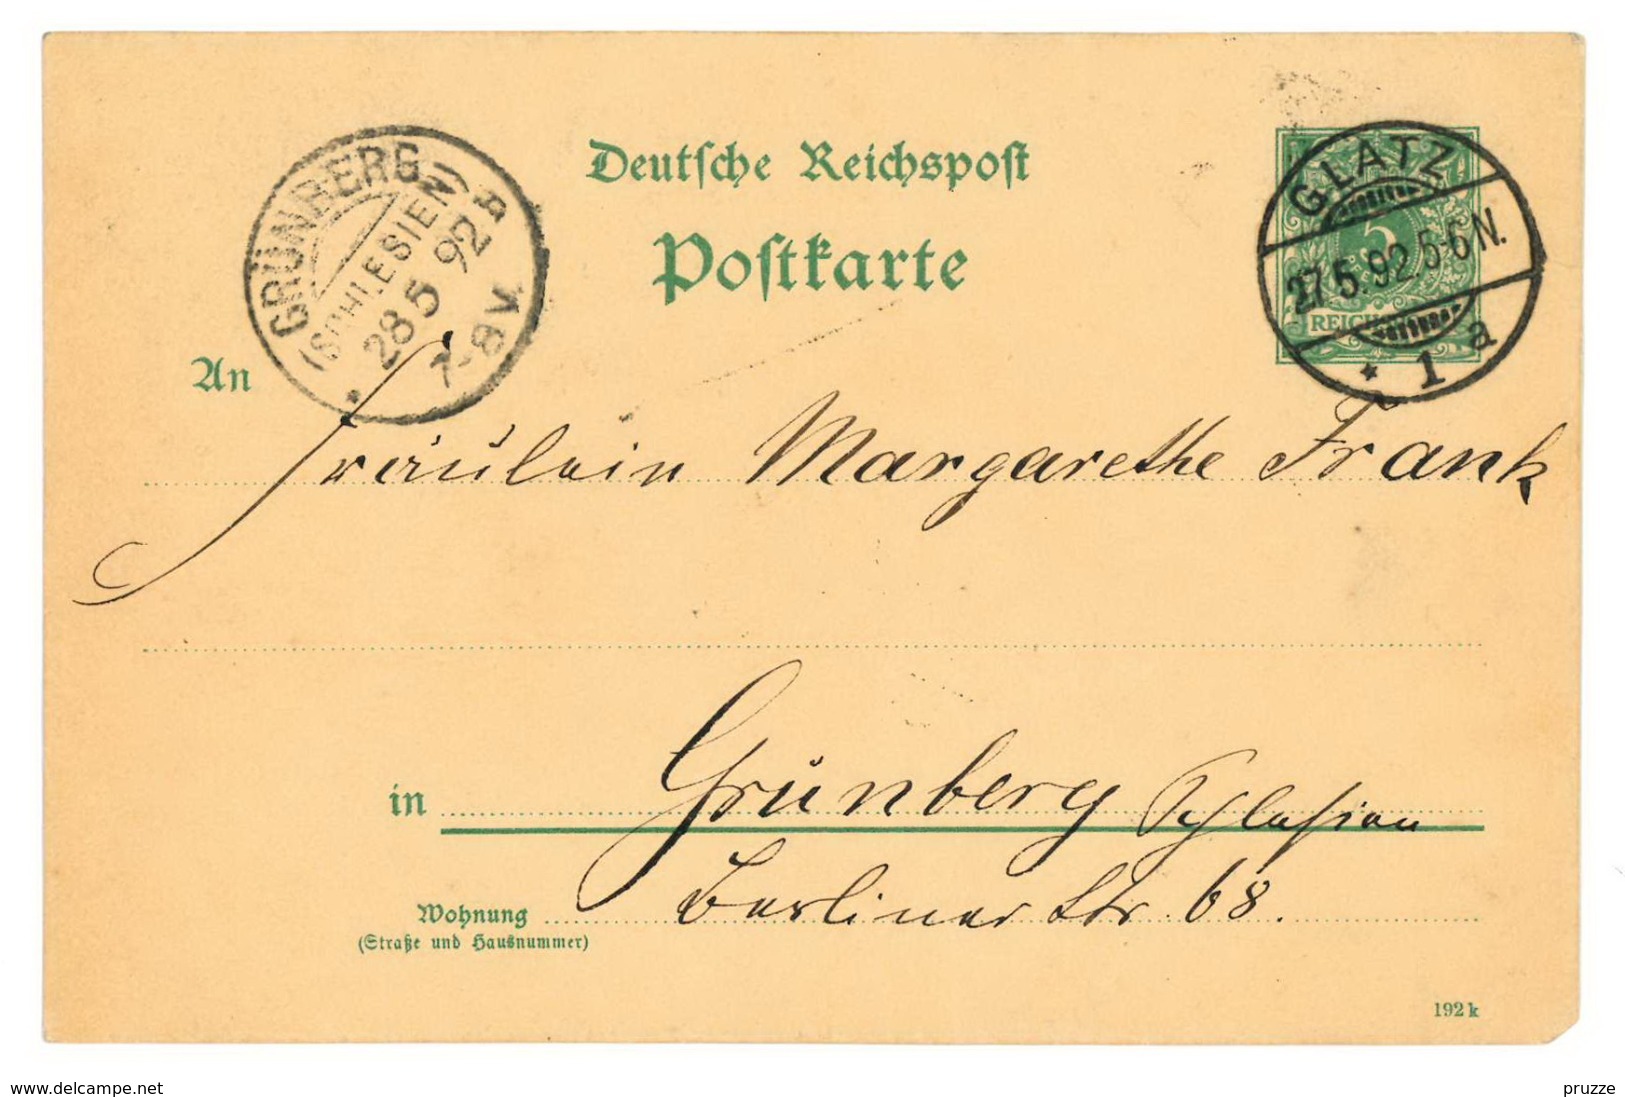 Deutsche Reichspost
Postkarte
GRÜNBERG
(SCHLESIEN)
28 5 92
7-8 V.
GLATZ
27.5.92.5-6N.
* 1 a
5
REICHS
An
Fräulein Margarethe Frank
in Grünberg Schlesien
Wohnung Berliner Str. 68.
(Straße und Hausnummer)
192 k
www.delcampe.net
pruzze